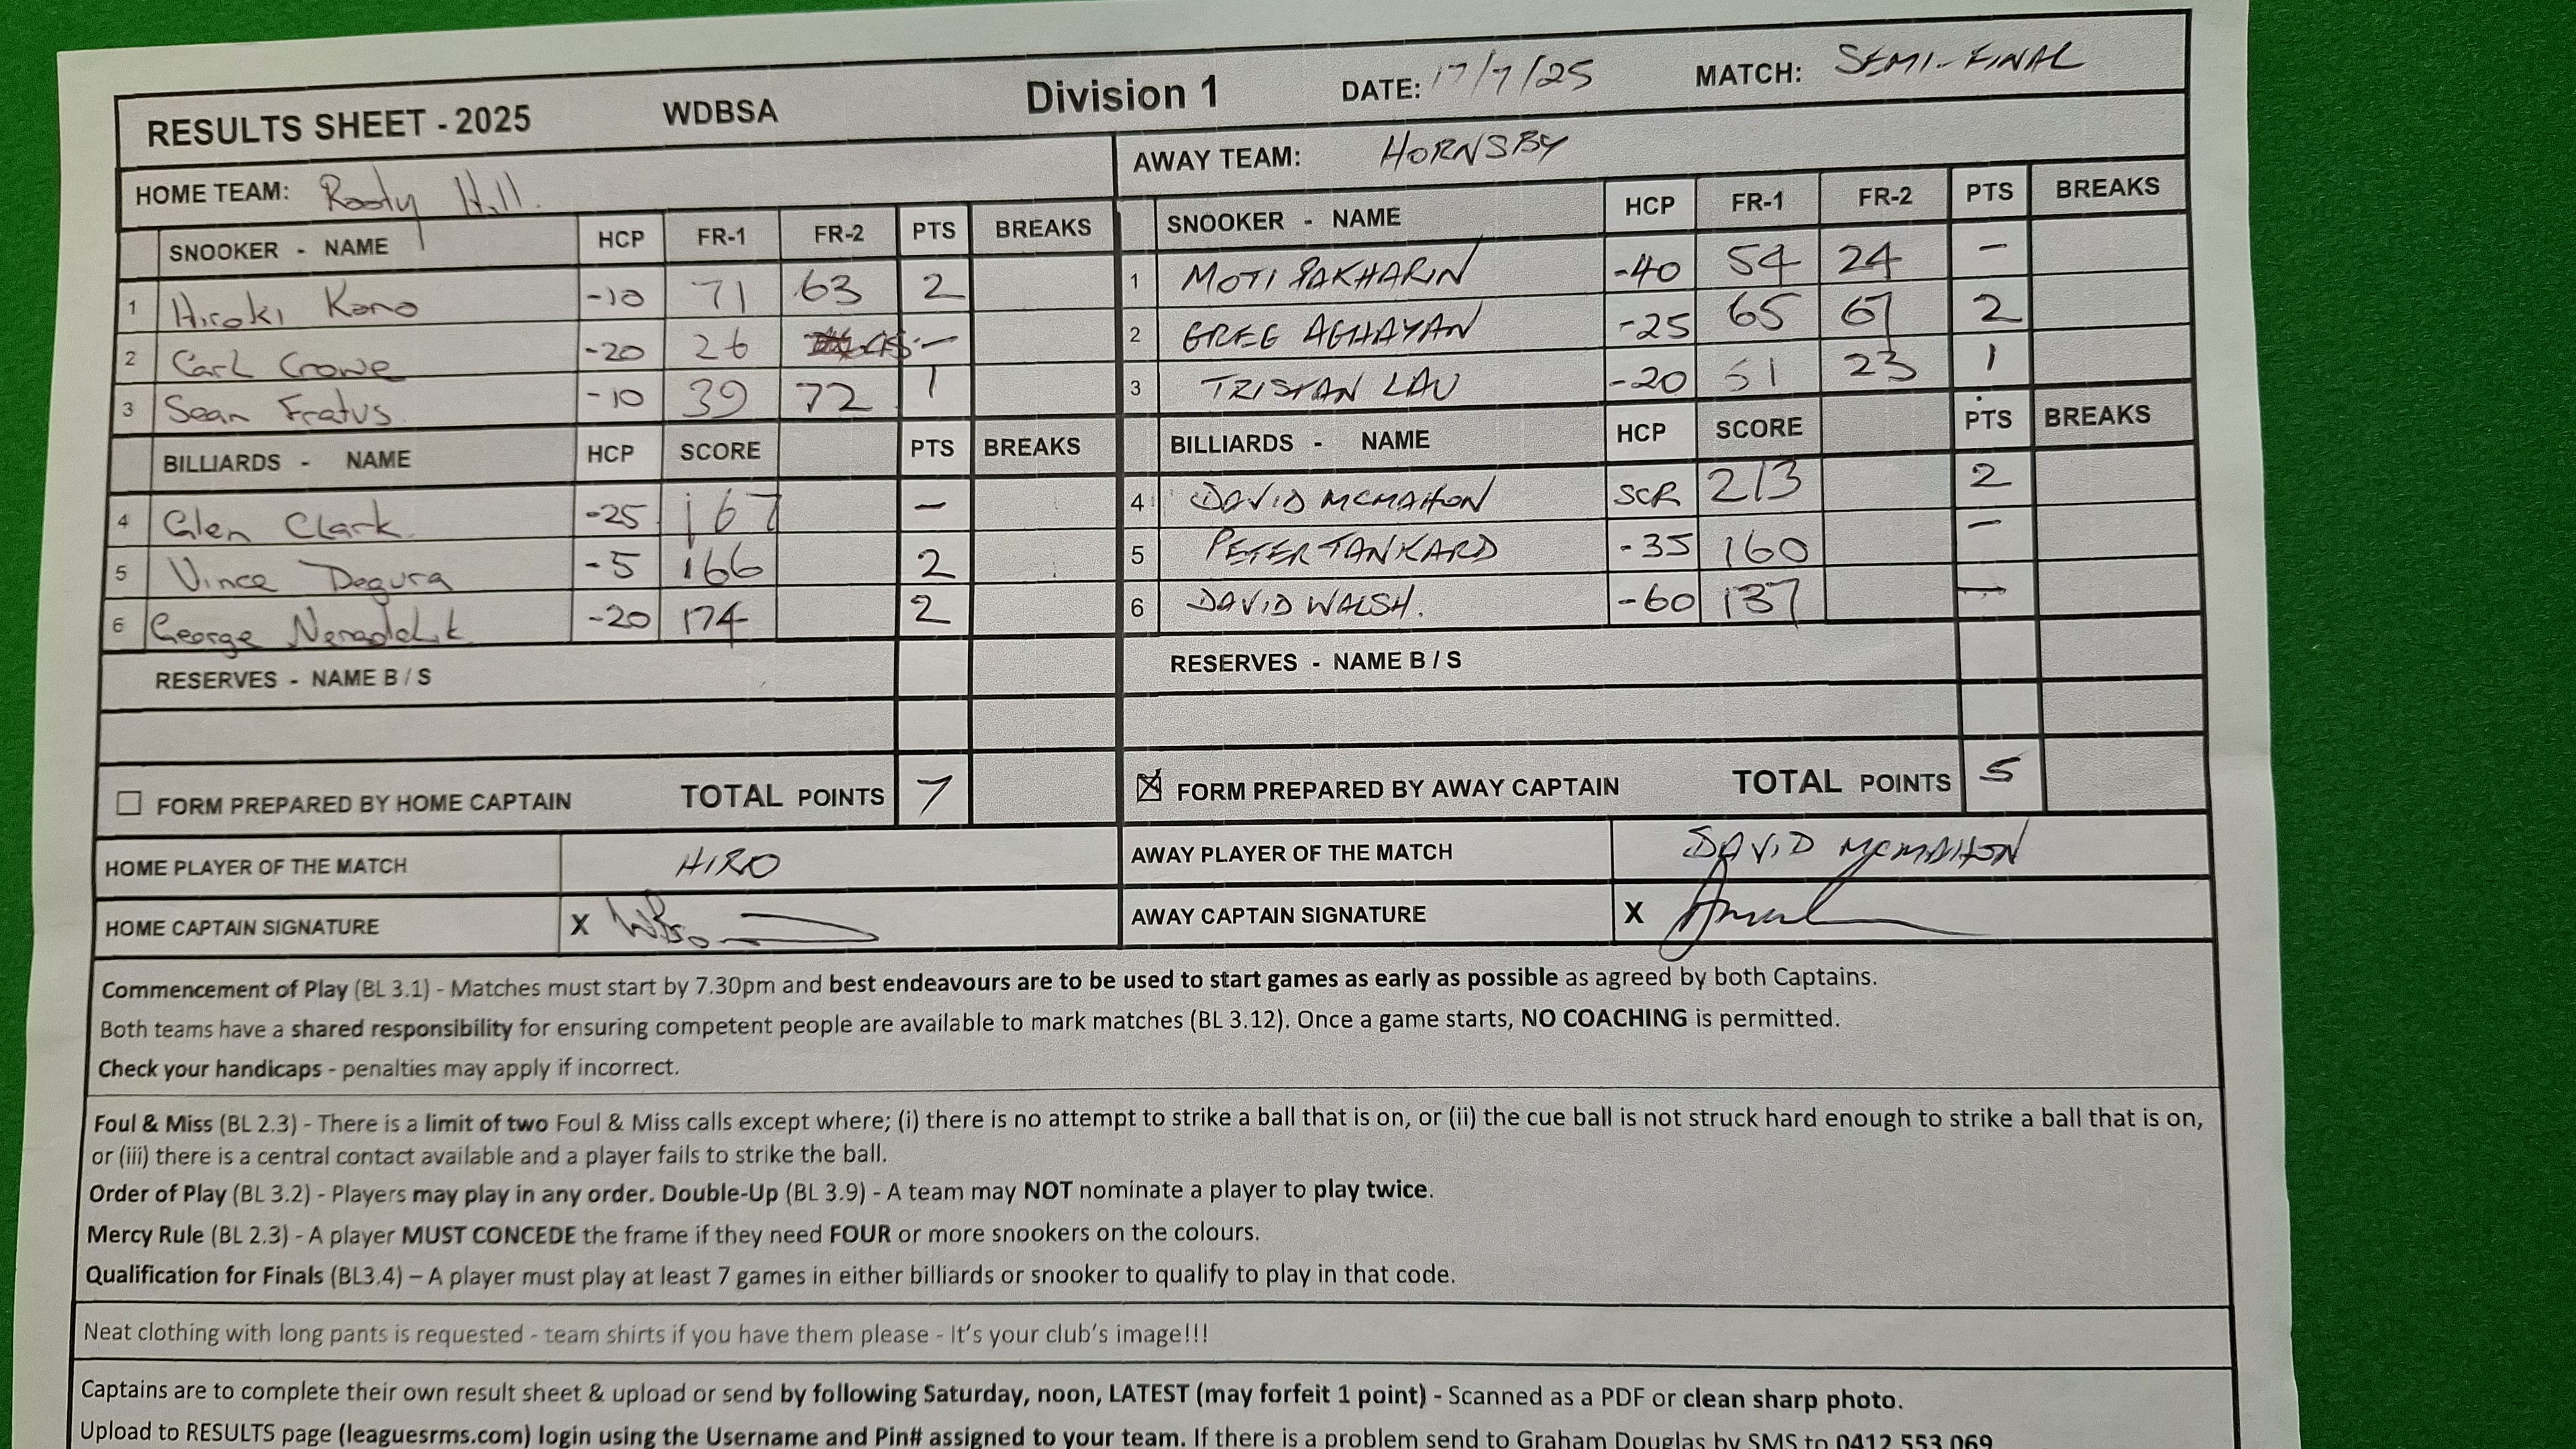 RESULTS SHEET - 2025 WDBSA Division 1 DATE: 17/7/25 MATCH: SEMI-FINAL
HOME TEAM: Rooty Hill. AWAY TEAM: HORNSBY
SNOOKER - NAME HCP FR-1 FR-2 PTS BREAKS SNOOKER - NAME HCP FR-1 FR-2 PTS BREAKS
1 Hiroki Kono -10 71 63 2 1 MOTI -40 54 24 -
2 Carl Crowe -20 26 - 2 GREG AGHAYAN -25 65 67 2
3 Sean Fratus -10 39 72 1 3 TRISTAN LAU -20 51 23 1
BILLIARDS - NAME HCP SCORE PTS BREAKS BILLIARDS - NAME HCP SCORE PTS BREAKS
4 Glen Clark. -25 167 - 4 DAVID MCMAHON SCR 213 2
5 Vince Degura -5 166 2 5 PETER TANKARD -35 160 -
6 George -20 174 2 6 DAVID WALSH. -60 137 -
RESERVES - NAME B / S RESERVES - NAME B / S
FORM PREPARED BY HOME CAPTAIN TOTAL POINTS 7 FORM PREPARED BY AWAY CAPTAIN TOTAL POINTS 5
HOME PLAYER OF THE MATCH HIRO AWAY PLAYER OF THE MATCH DAVID MCMAHON
HOME CAPTAIN SIGNATURE X AWAY CAPTAIN SIGNATURE X
Commencement of Play (BL 3.1) - Matches must start by 7.30pm and best endeavours are to be used to start games as early as possible as agreed by both Captains.
Both teams have a shared responsibility for ensuring competent people are available to mark matches (BL 3.12). Once a game starts, NO COACHING is permitted.
Check your handicaps - penalties may apply if incorrect.
Foul & Miss (BL 2.3) - There is a limit of two Foul & Miss calls except where; (i) there is no attempt to strike a ball that is on, or (ii) the cue ball is not struck hard enough to strike a ball that is on,
or (iii) there is a central contact available and a player fails to strike the ball.
Order of Play (BL 3.2) - Players may play in any order. Double-Up (BL 3.9) - A team may NOT nominate a player to play twice.
Mercy Rule (BL 2.3) - A player MUST CONCEDE the frame if they need FOUR or more snookers on the colours.
Qualification for Finals (BL3.4) – A player must play at least 7 games in either billiards or snooker to qualify to play in that code.
Neat clothing with long pants is requested - team shirts if you have them please - It's your club's image!!!
Captains are to complete their own result sheet & upload or send by following Saturday, noon, LATEST (may forfeit 1 point) - Scanned as a PDF or clean sharp photo.
Upload to RESULTS page (leaguesrms.com) login using the Username and Pin# assigned to your team. If there is a problem send to Graham Douglas by SMS to 0412 553 069